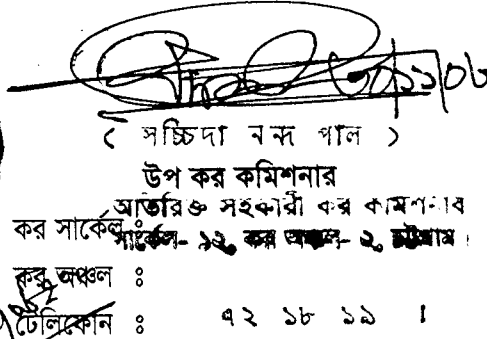 ৩০/১১/০৮
( সচ্চিদা নন্দ পাল )
উপ কর কমিশনার
অতিরিক্ত সহকারী কর কমিশনার
কর সার্কেল ঃ সার্কেল- ১২, কর অঞ্চল- ২, চট্টগ্রাম।
কর অঞ্চল ঃ
টেলিফোন ঃ ৭২ ১৮ ১৯ ।